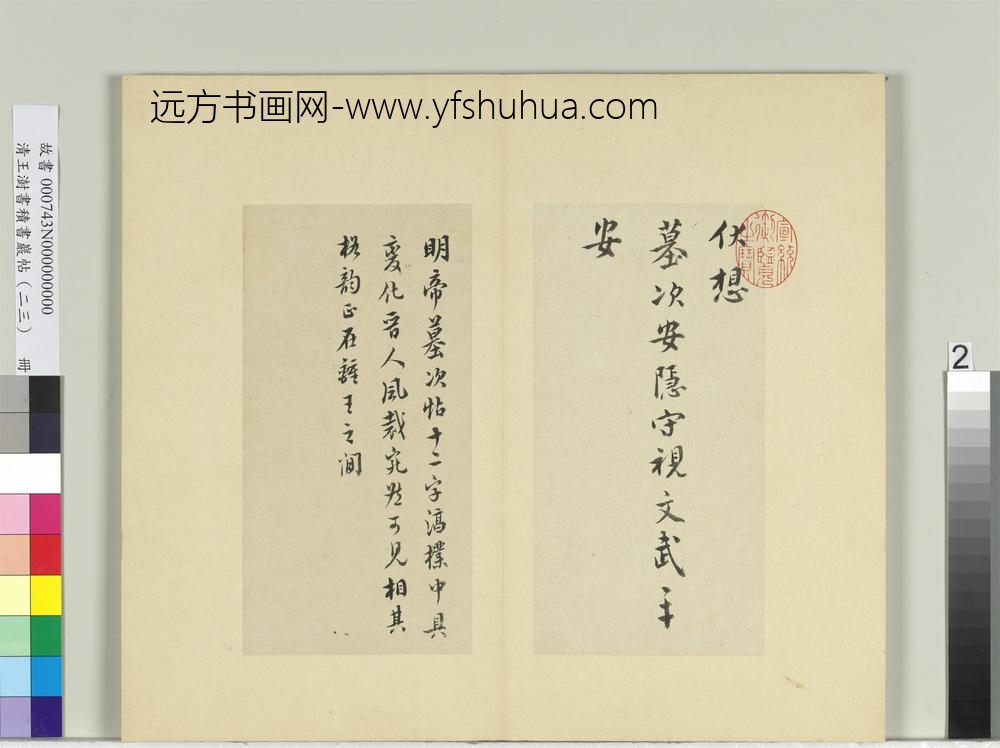 远方书画网-www.yfshuhua.com
伏想
墓次安隱守視文武平
安
明帝墓次帖十二字淳樸中具
變化晉人風裁宛然可見相其
格韵正在鍾王之間
宣統御覽之寶
故書 000743N000000000
清王澍書積書巖帖（二三） 冊
2